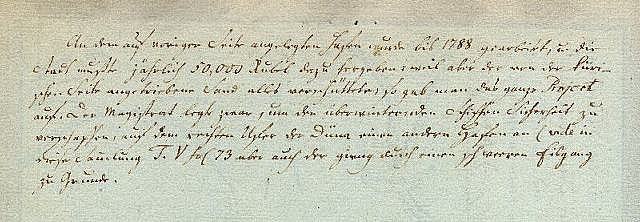 An dem auf voriger Seite angelegten Hafen wurde bis 1788 gearbeitet, u. die
Stadt mußte jährlich 50,000 Rubel dazu hergeben; weil aber der von der
schen Seite angetriebene Sand alles verschüttete; so gab man das ganze Project
auf. Der Magistrat legte zwar, um den überwinternden Schiffen Sicherheit zu
verschaffen, auf dem rechten Ufer der Düna einen andern Hafen an (vide in
diese Samlung T. V fol 73 aber auch der gieng durch einen schweren Eisgang
zu Grunde.